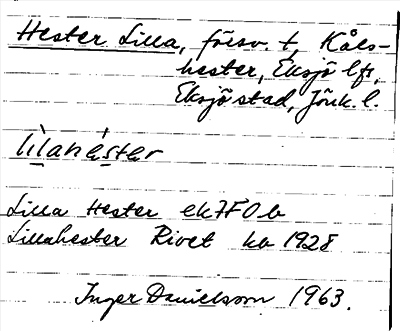 Hester Lilla, försv. t, Kåls-
hester, Eksjö lfs,
Eksjö stad, Jönk. l.
lìlahèstər
Lilla Hester ek 7F0b
Lillahester Rivet kb 1928
Inger Danielsson 1963.